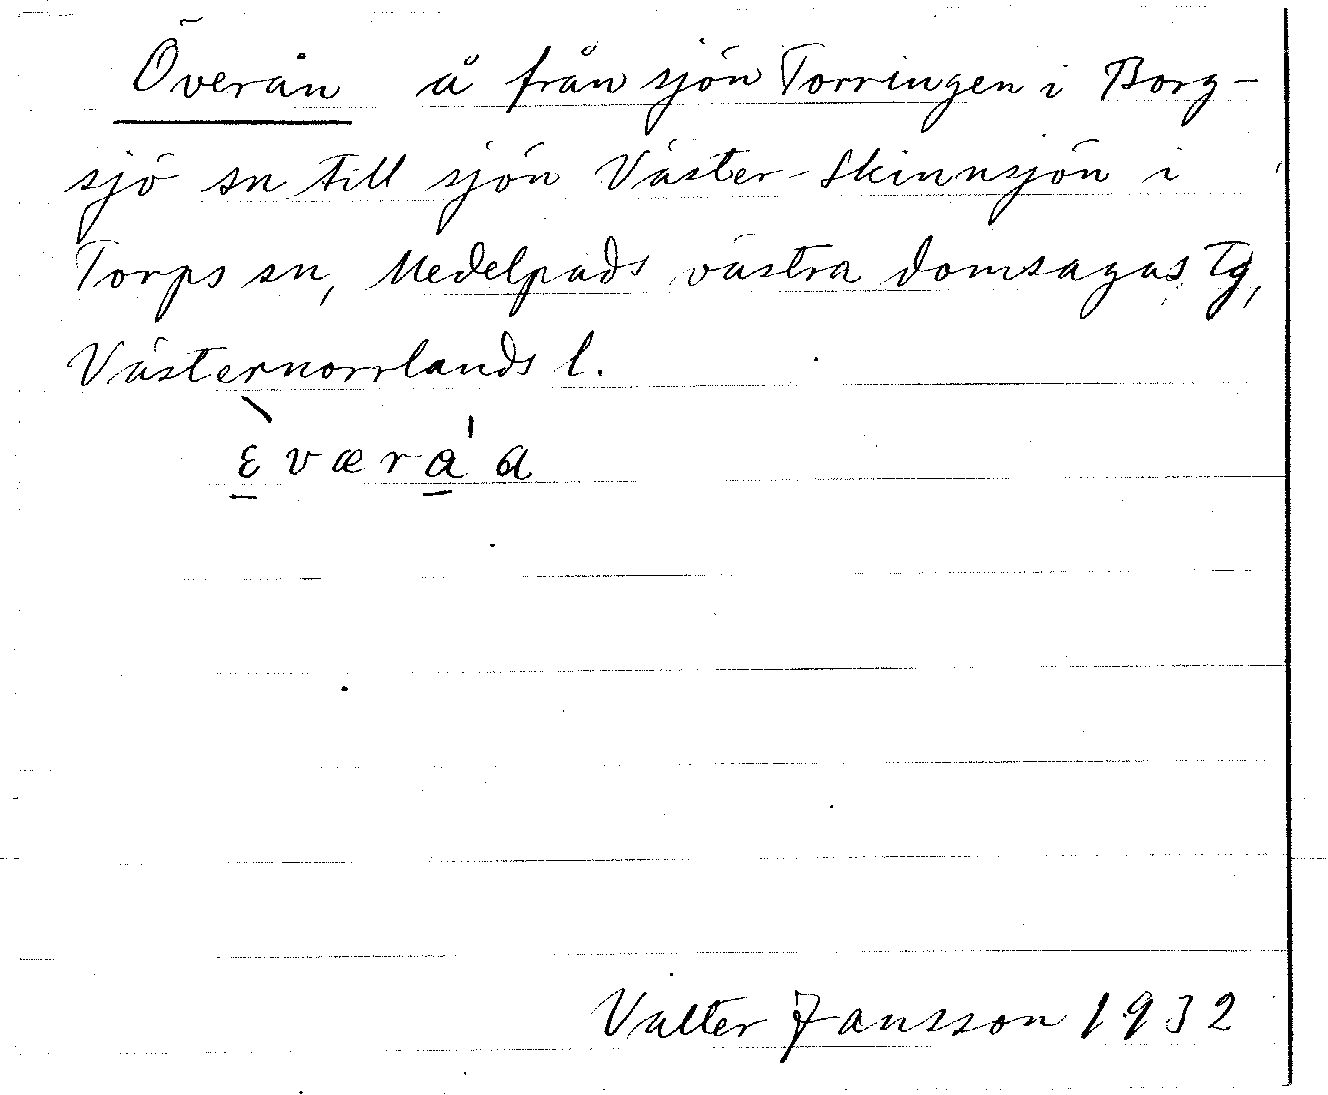 Överån å från sjön Torringen i Borg-
sjö sn till sjön Väster-Skinnsjön i
Torps sn, Medelpads västra domsagas Tg,
Västernorrlands l.
ɛ̠̀væra̠'a
Valter Jansson 1932